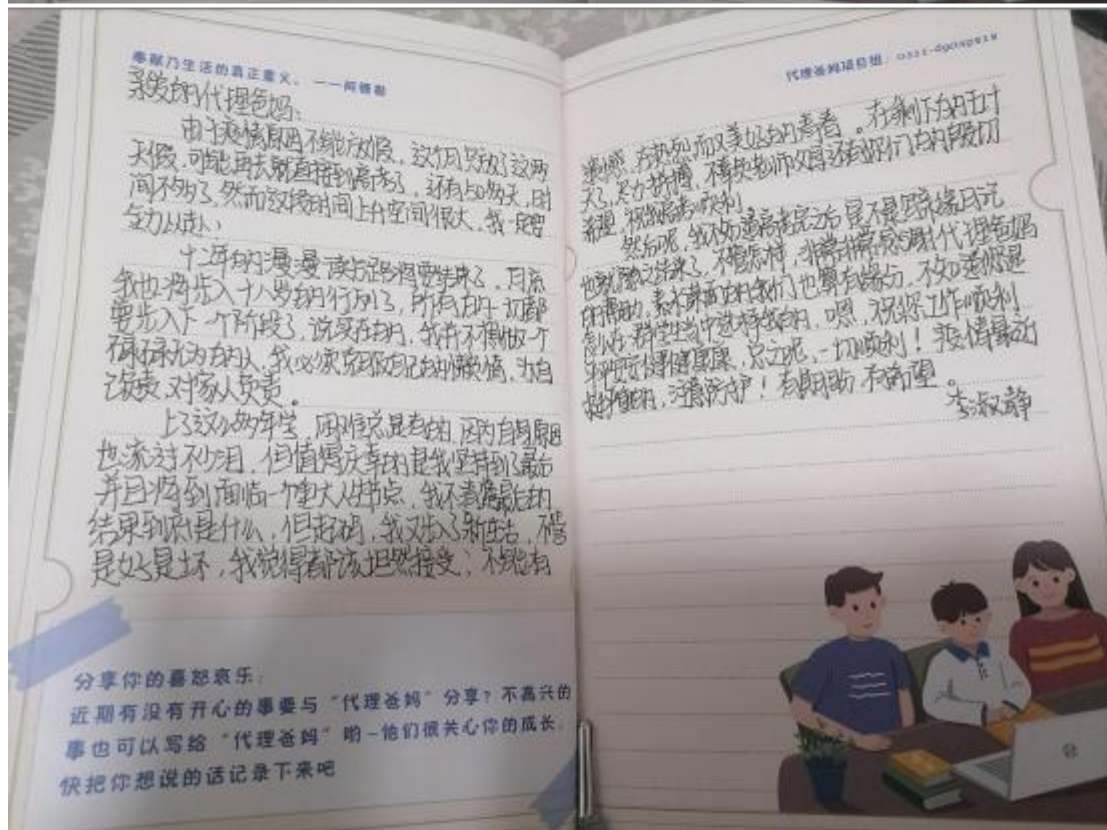 奉献乃生活的真正意义。——阿德勒
亲爱的代理爸妈:
由于疫情原因不能放假,这个月只放了这两
天假,可能再去就直接到高考了,还有50多天,时
间不多了,然而这段时间上升空间很大,我一定要
全力以赴
十二年的漫漫读书路将要结束了,自然
我也将步入十八岁的行列了,所有的一切都
要步入下一个阶段了,说实在的,我并不想做一个
碌碌无为的人,我必须克服自己的懒惰,为自
己负责,对家人负责。
上了这么多年学,困难总是有的,因为自身原因
也流过不少泪,但值得庆幸的是我坚持到了最后
并且将到面临一个重大人生节点,我不清楚最后的
结果到底是什么,但起码,我又步入了新生活,不管
是好是坏,我觉得都该坦然接受,不能有
分享你的喜怒哀乐:
近期有没有开心的事要与“代理爸妈”分享?不高兴的
事也可以写给“代理爸妈”哟~他们很关心你的成长,
快把你想说的话记录下来吧
代理爸妈项目组:0311-
遗憾,在热烈而又美好的青春。在剩下的五十
天,尽力拼搏,不辜负老师父母还有你们的殷切
希望,祝我高考顺利。
然后呢,我不知道高考完之后是不是写亲缘日记
也就随之结束了,不管怎样,非常非常感谢代理爸妈
的帮助,素不谋面的我们也算有缘分,不知道您是
在一群学生当中选择我的,嗯,祝您工作顺利
平平安安健健康康,总之呢,一切顺利!疫情最近
挺严重的,注意防护!有期盼 有希望。
李淑静